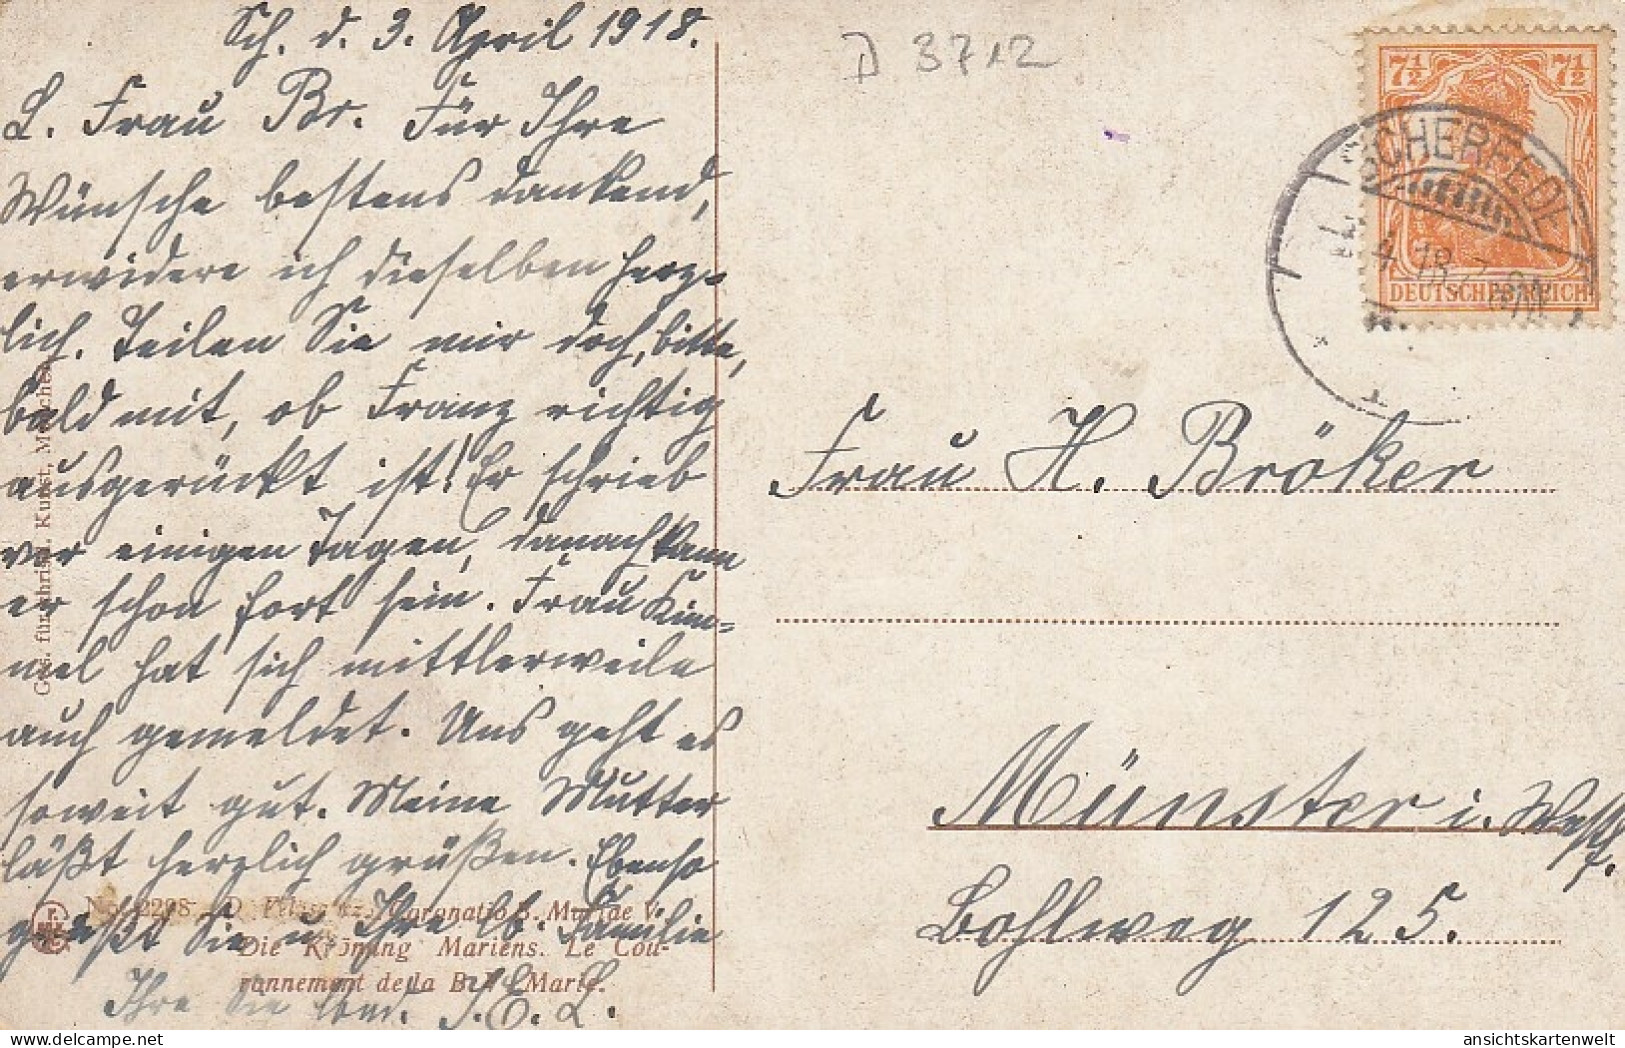 Sch. d. 3. April 1918.
L. Frau Br. Für Ihre
Wünsche bestens dankend,
erwidere ich dieselben herz-
lich. Teilen Sie mir doch, bitte,
bald mit, ob Franz richtig
ausgerückt ist! Er schrieb
vor einigen Tagen, danach kann
er schon fort sein. Frau Kim-
mel hat sich mittlerweile
auch gemeldet. Uns geht es
soweit gut. Meine Mutter
läßt herzlich grüßen. Ebenso
grüßt Sie u. Ihre lb. Familie
Ihre Sie
Ges. für christl. Kunst, München
No. 2298
Coronatio B. Mariae V.
Die Krönung Mariens. Le Cou-
ronnement de la B. V. Marie.
D 3712
7½ 7½
DEUTSCHES REICH
SCHERFEDE
4.18.7-8
Frau H. Bröker
Münster i. Westf.
Bohlweg 125.
ansichtskartenwelt